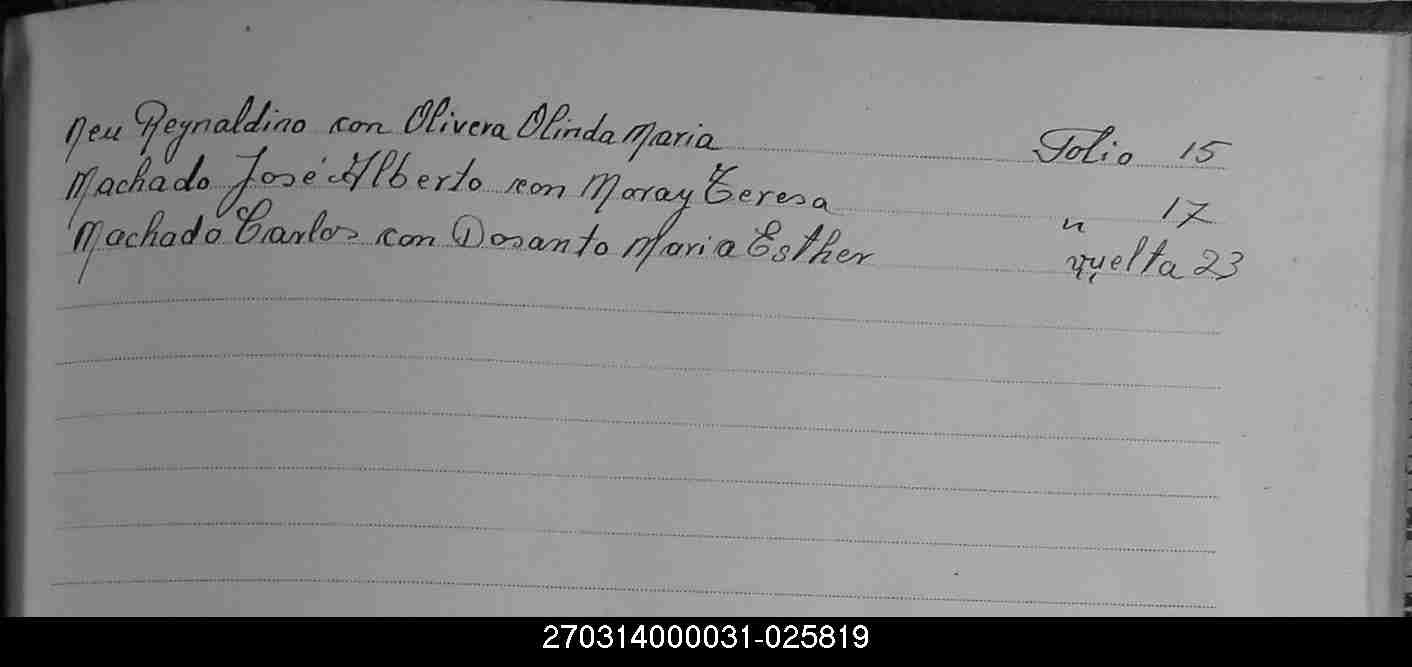 Neu Reynaldino con Olivera Olinda Maria Folio 15
Machado José Alberto con Moray Teresa " 17
Machado Carlos con Dosanto Maria Esther vuelta 23
270314000031-025819